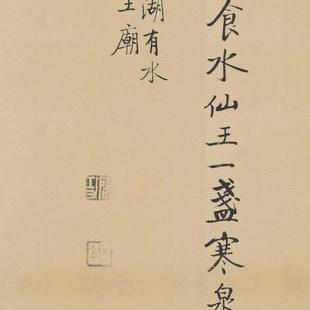 食水仙王一盏寒泉
湖有水
王廟